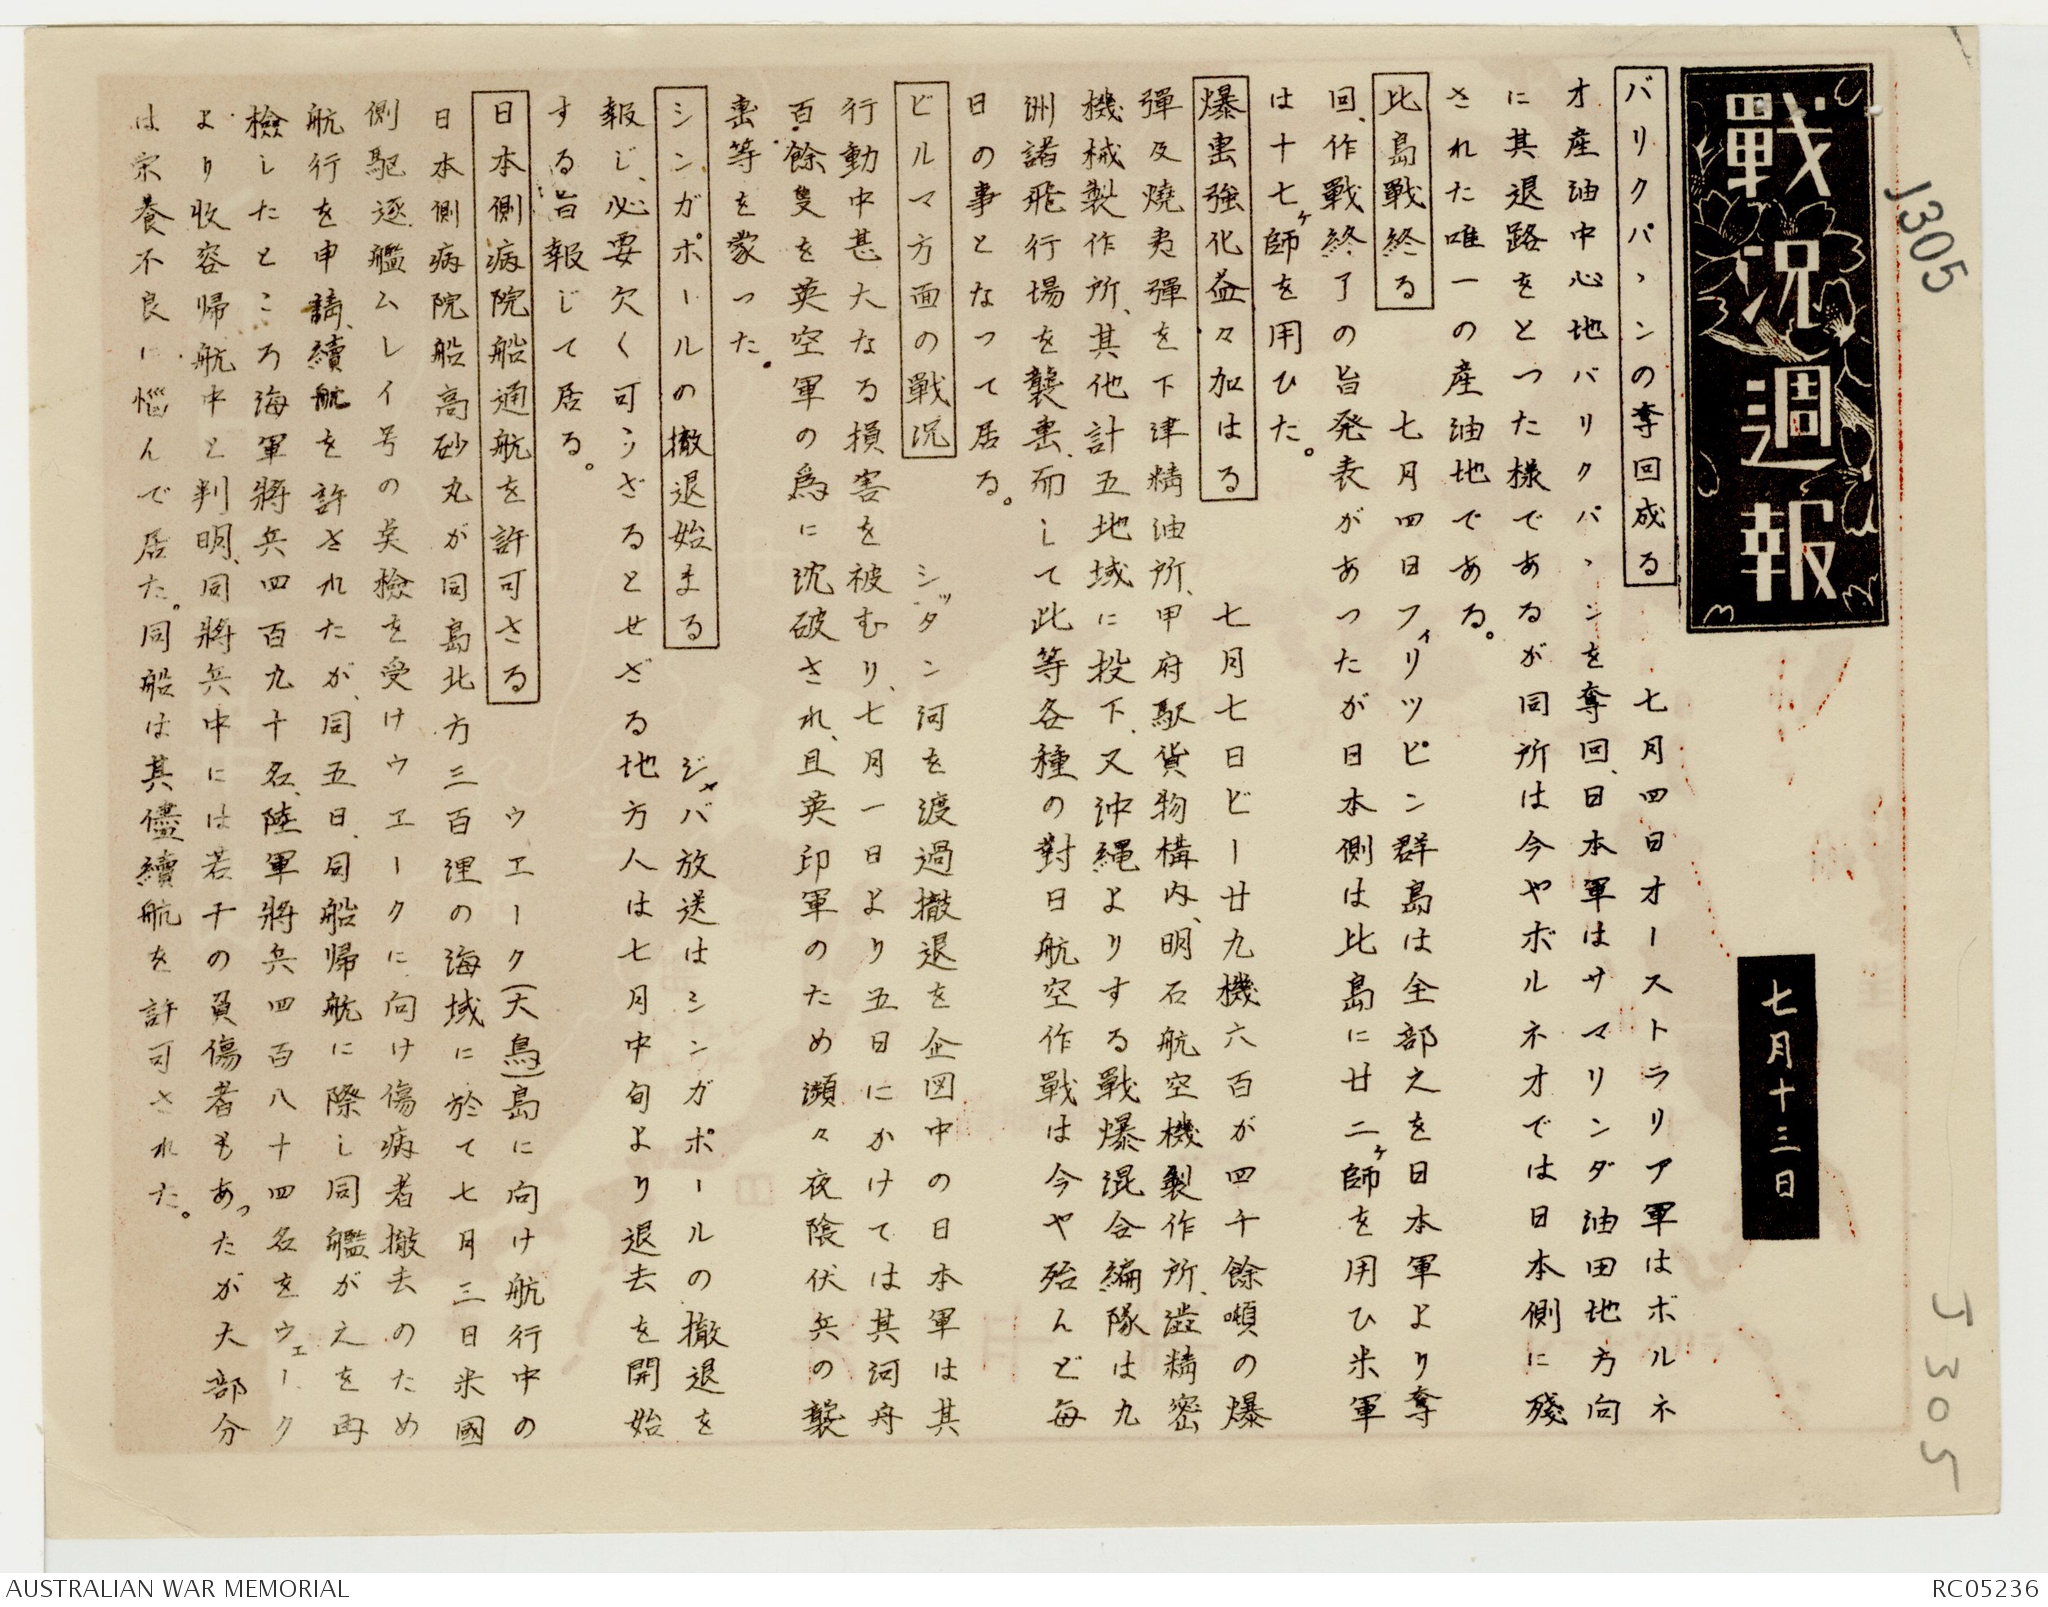 戰況週報
七月十三日
J305
J305
バリクパヽンの奪回成る 七月四日オーストラリア軍はボルネ
オ産油中心地バリクパヽンを奪回、日本軍はサマリンダ油田地方向
に其退路をとつた様であるが同所は今やボルネオでは日本側に殘
された唯一の産油地である。
比島戰終る 七月四日フィリツピン群島は全部之を日本軍より奪
回、作戰終了の旨発表があつたが日本側は比島に廿二ヶ師を用ひ米軍
は十七ヶ師を用ひた。
爆擊強化益々加はる 七月七日ビー廿九機六百が四千餘噸の爆
彈及燒夷彈を下津精油所、甲府駅貨物構内、明石航空機製作所、澁精密
機械製作所、其他計五地域に投下、又沖縄よりする戰爆混合編隊は九
洲諸飛行場を襲擊、而して此等各種の對日航空作戰は今や殆んど毎
日の事となって居る。
ビルマ方面の戰況 シッタン河を渡過撤退を企図中の日本軍は其
行動中甚大なる損害を被むり、七月一日より五日にかけては其河舟
百餘隻を英空軍の爲に沈破され、且英印軍のため瀕々夜陰伏兵の襲
擊等を蒙った。
シンガポールの撤退始まる ジャバ放送はシンガポールの撤退を
報じ、必要欠く可らざるとせざる地方人は七月中旬より退去を開始
する旨報じて居る。
日本側病院船通航を許可さる ウエーク(大鳥)島に向け航行中の
日本側病院船高砂丸が同島北方三百浬の海域に於て七月三日米國
側駆逐艦ムレイ号の臭檢を受けウエークに向け傷病者撤去のため
航行を申請、續航を許されたが、同五日、同船帰航に際し同艦が之を再
檢したところ海軍將兵四百九十名、陸軍將兵四百八十四名をウェーク
より收容帰航中と判明、同將兵中には若干の負傷者もあったが大部分
は栄養不良に惱んで居た。同船は其儘續航を許可された。
AUSTRALIAN WAR MEMORIAL
RC05236